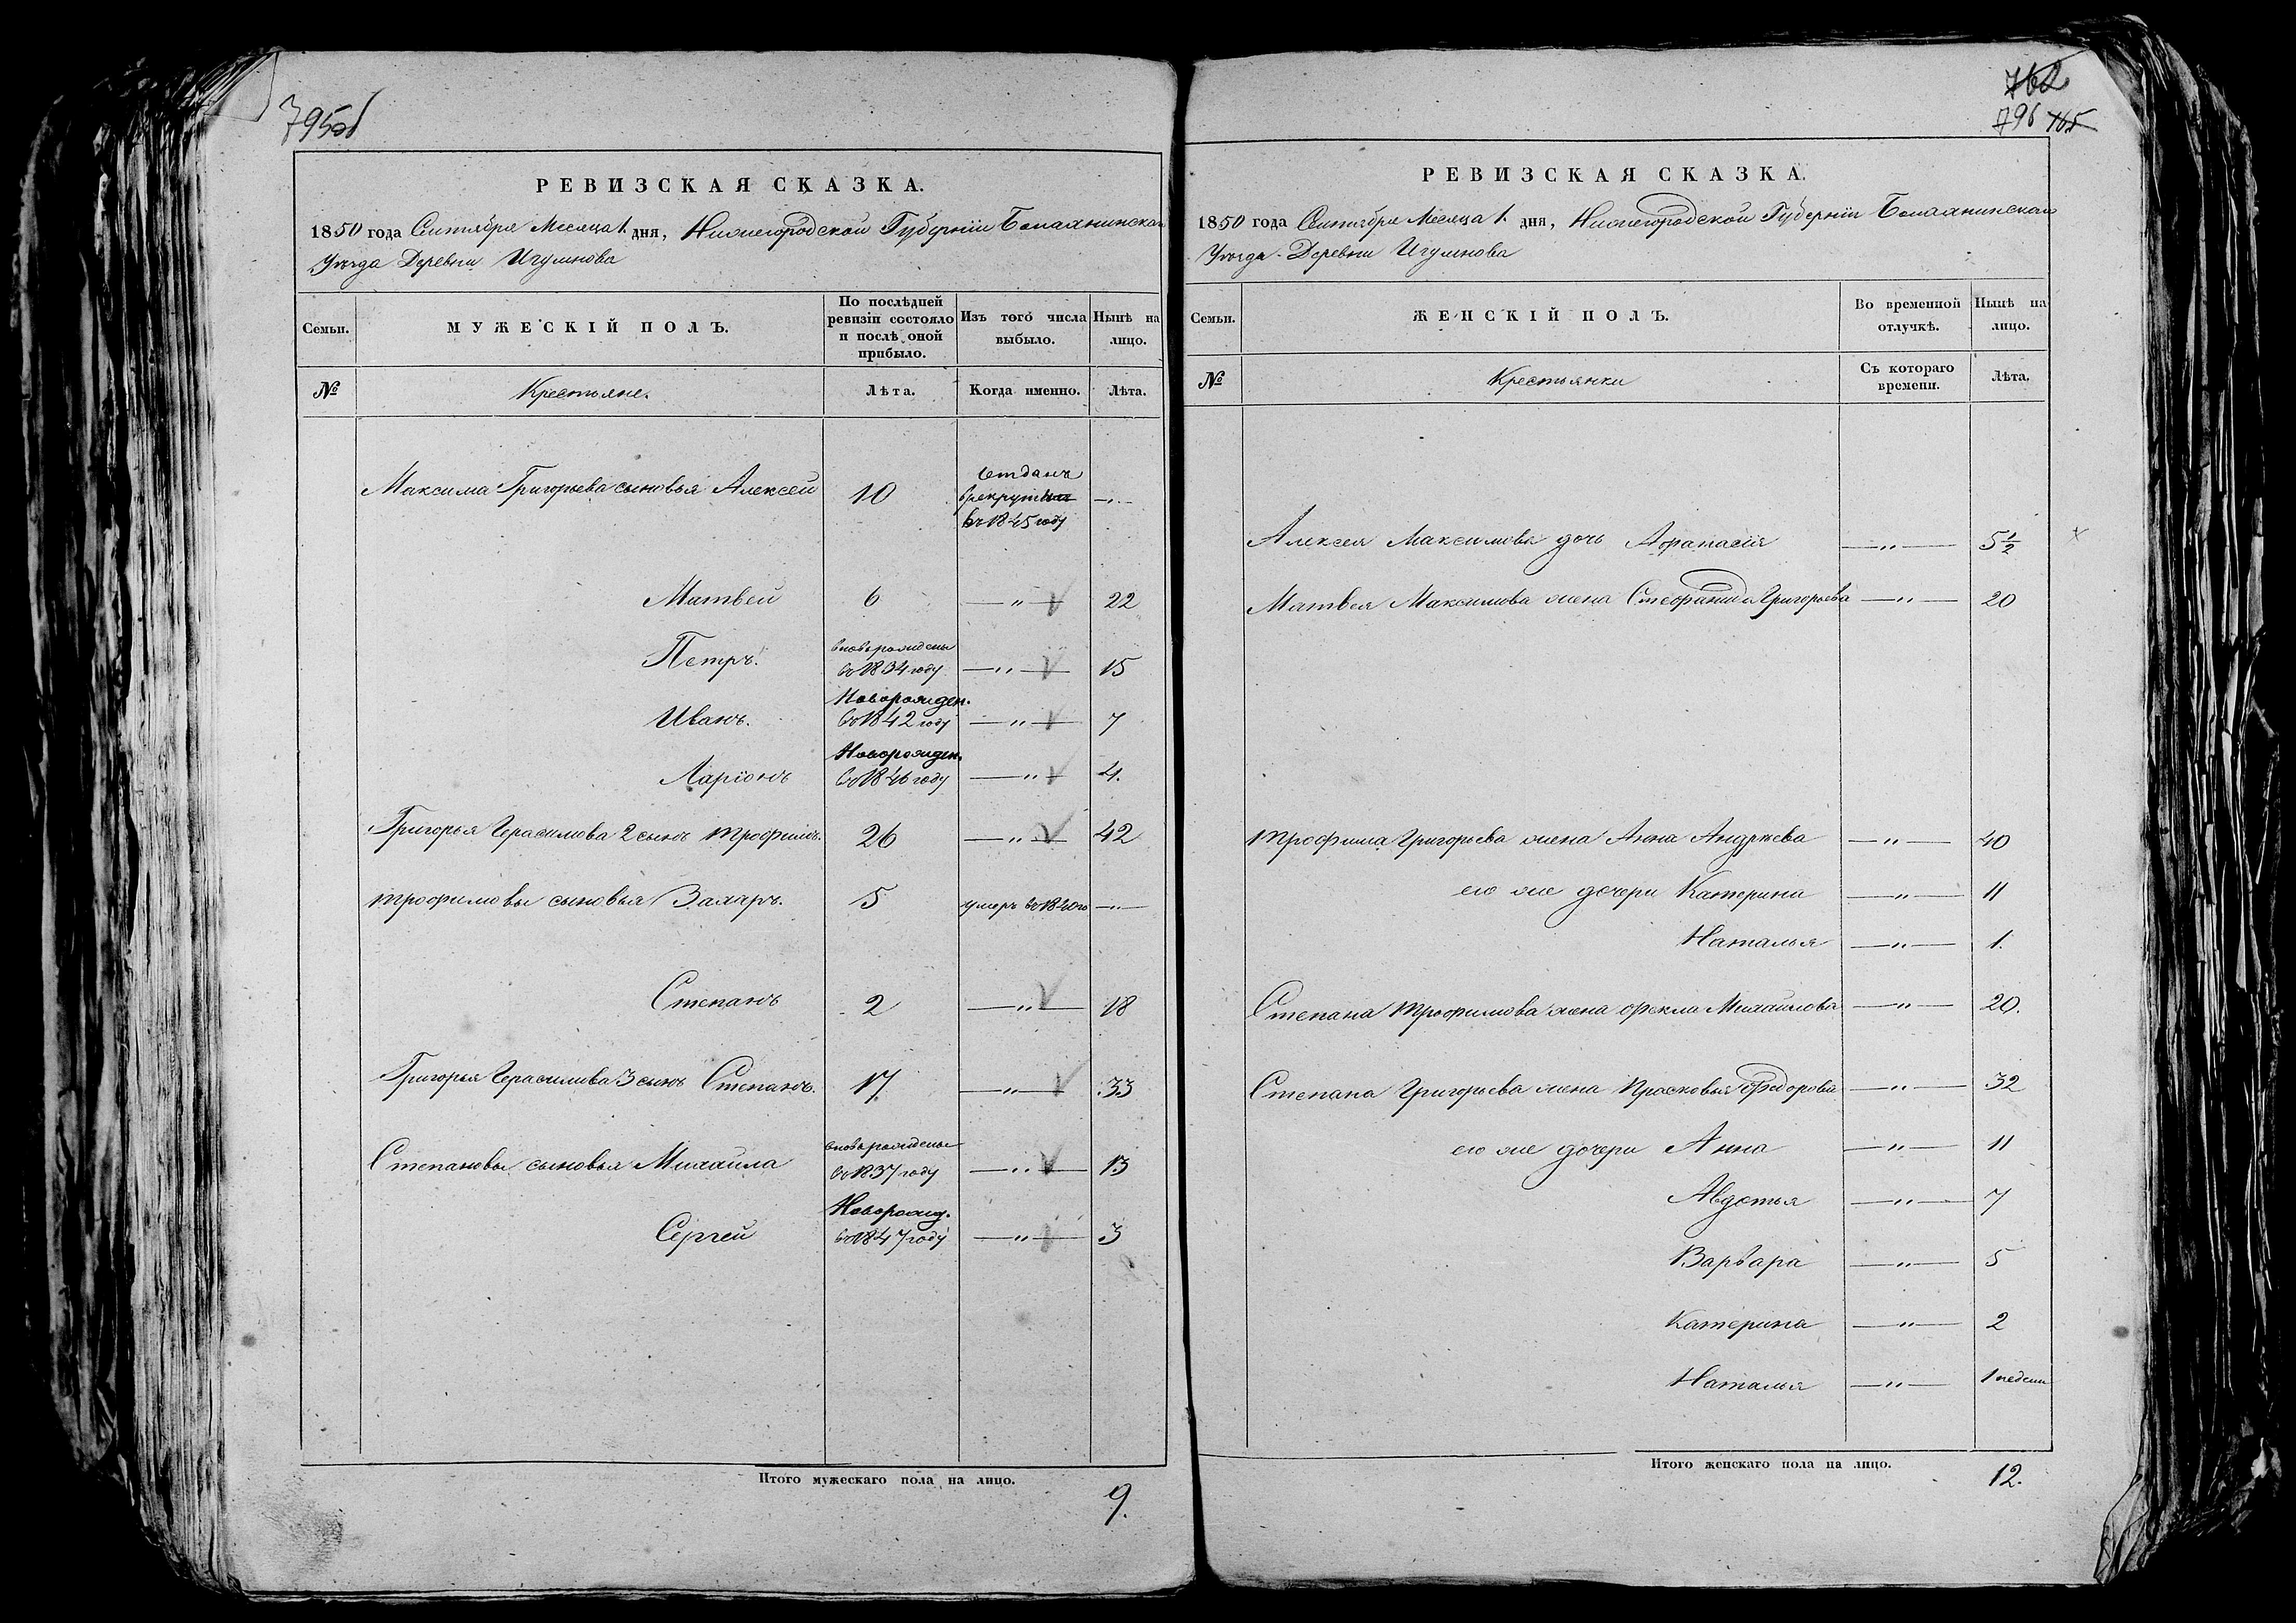 795об
РЕВИЗСКАЯ СКАЗКА.
1850 года Сентября Месяца 1. дня, Нижегородской Губерніи Балахнинскаго
Уѣзда Деревни Игумнова
Семьи.
МУЖЕСКІЙ ПОЛЪ.
По послѣдней ревизіи состояло и послѣ оной прибыло.
Изъ того числа выбыло.
Нынѣ на лицо.
№
Крестьяне.
Лѣта.
Когда именно.
Лѣта.
Максима Григорьева сыновья Алексей 10 Отданъ в рекруты въ 1845 году —„—
Матвей 6 —„— 22
Петръ. вновь рожденъ въ 1834 году —„— 15
Иванъ. Новорожден. въ 1842 году —„— 7
Ларіонъ Новорожден. въ 1846 году —„— 4.
Григорья Герасимова 2 сынъ Трофимъ. 26 —„— 42
Трофимовы сыновья Захаръ. 5 умеръ въ 1840го —„—
Степанъ 2 —„— 18
Григорья Герасимова 3 сынъ Степанъ. 17 —„— 33
Степановы сыновья Михаила вновь рожденъ въ 1837 году —„— 13
Сергей Новорожд. въ 1847 году —„— 3
Итого мужескаго пола на лицо.
9.
762
796 765
РЕВИЗСКАЯ СКАЗКА.
1850 года Сентября Месяца 1. дня, Нижегородской Губерніи Балахнинскаго
Уѣзда Деревни Игумнова
Семьи.
ЖЕНСКІЙ ПОЛЪ.
Во временной отлучкѣ.
Нынѣ на лицо.
№
Крестьянки
Съ котораго времени.
Лѣта.
Алексея Максимова дочь Афанасия —„— 5½
Матвея Максимова жена Стефанида Григорьева —„— 20
Трофима Григорьева жена Анна Андрѣева —„— 40
его же дочери Катерина —„— 11
Наталья —„— 1.
Степана Трофимова жена Фекла Михайлова —„— 20.
Степана Григорьева жена Прасковья Федорова —„— 32
его же дочери Анна —„— 11
Авдотья —„— 7
Варвара —„— 5
Катерина —„— 2
Наталья —„— 1 недели
Итого женскаго пола на лицо.
12.